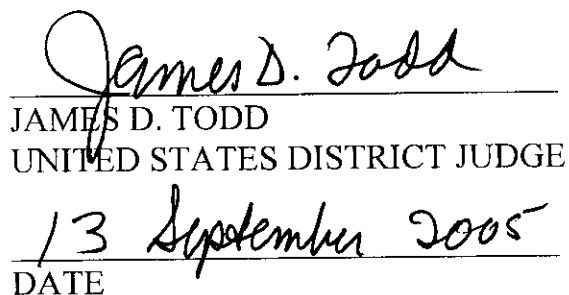 James D. Todd
JAMES D. TODD
UNITED STATES DISTRICT JUDGE
13 September 2005
DATE